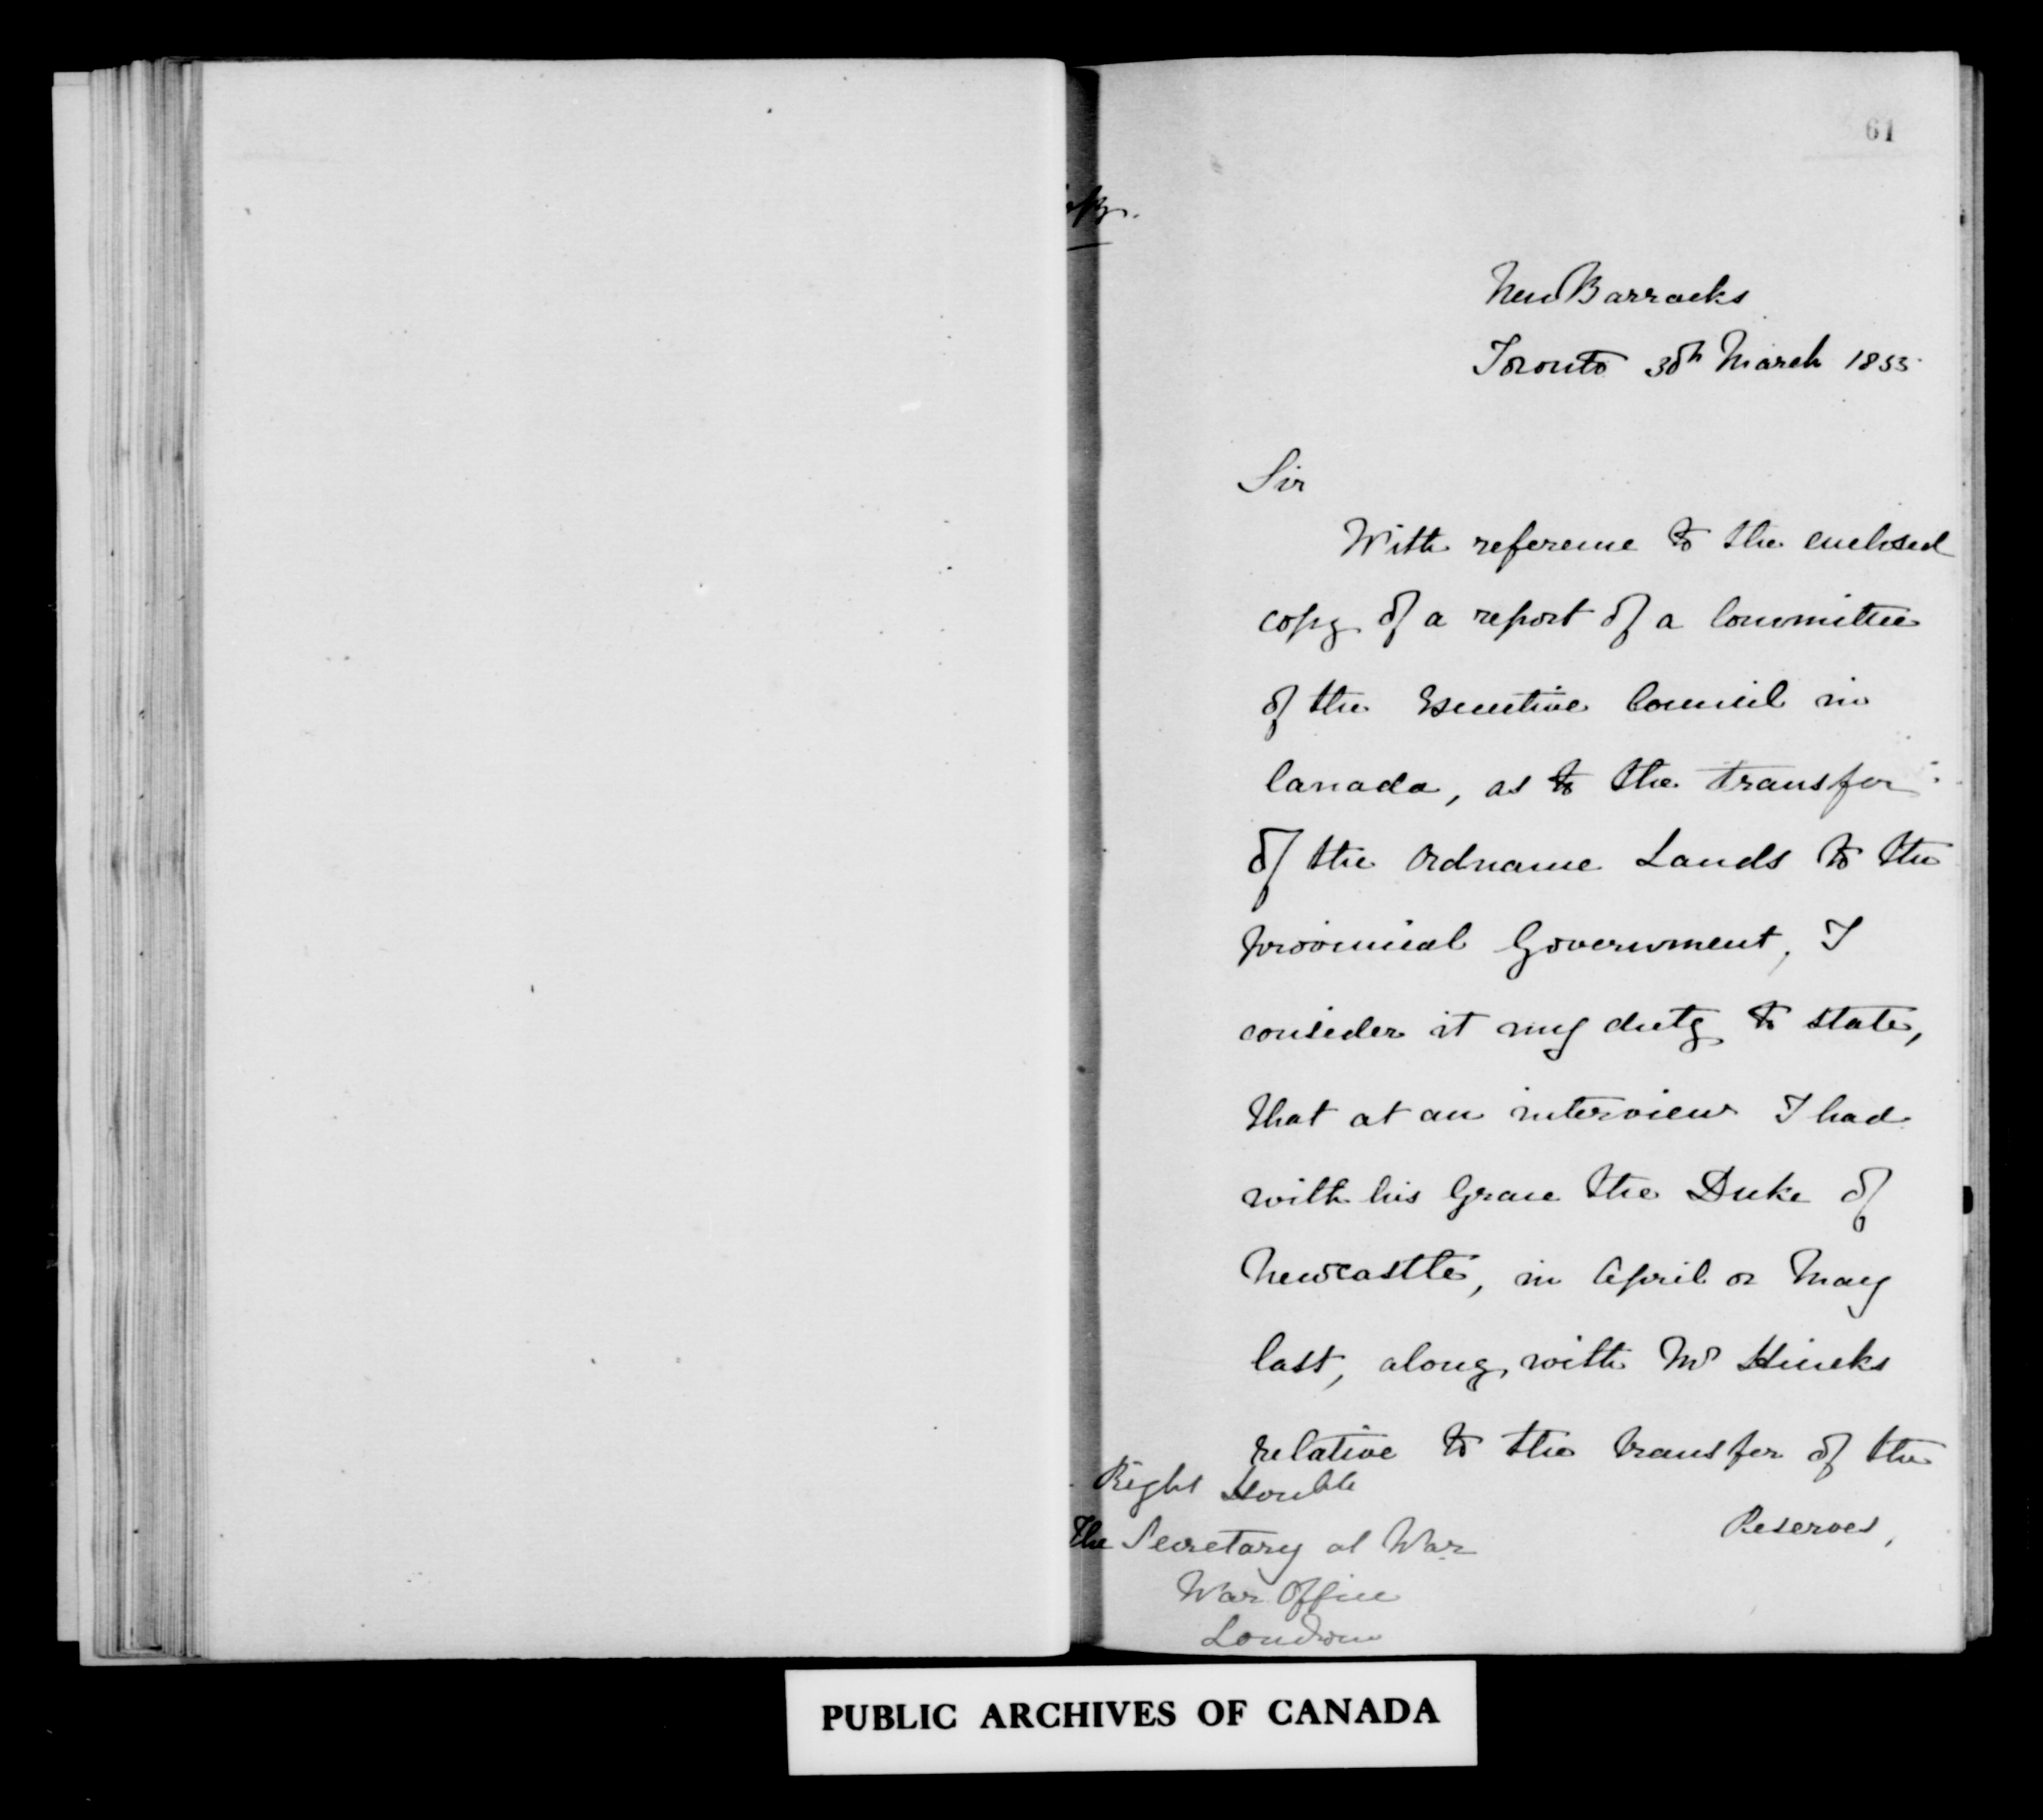 61
New Barracks
Toronto 30th March 1855
Sir
With reference to the enclosed
copy of a report of a Committee
of the Executive Council in
Canada, as to the transfer
of the Ordnance Lands to the
provincial Government, I
consider it my duty to state,
that at an interview I had
with his Grace the Duke of
Newcastle, in April or May
last, along with Mr Hincks
relative to the transfer of the
Reserves,
Right Honble
The Secretary at War
War Office
London
PUBLIC ARCHIVES OF CANADA